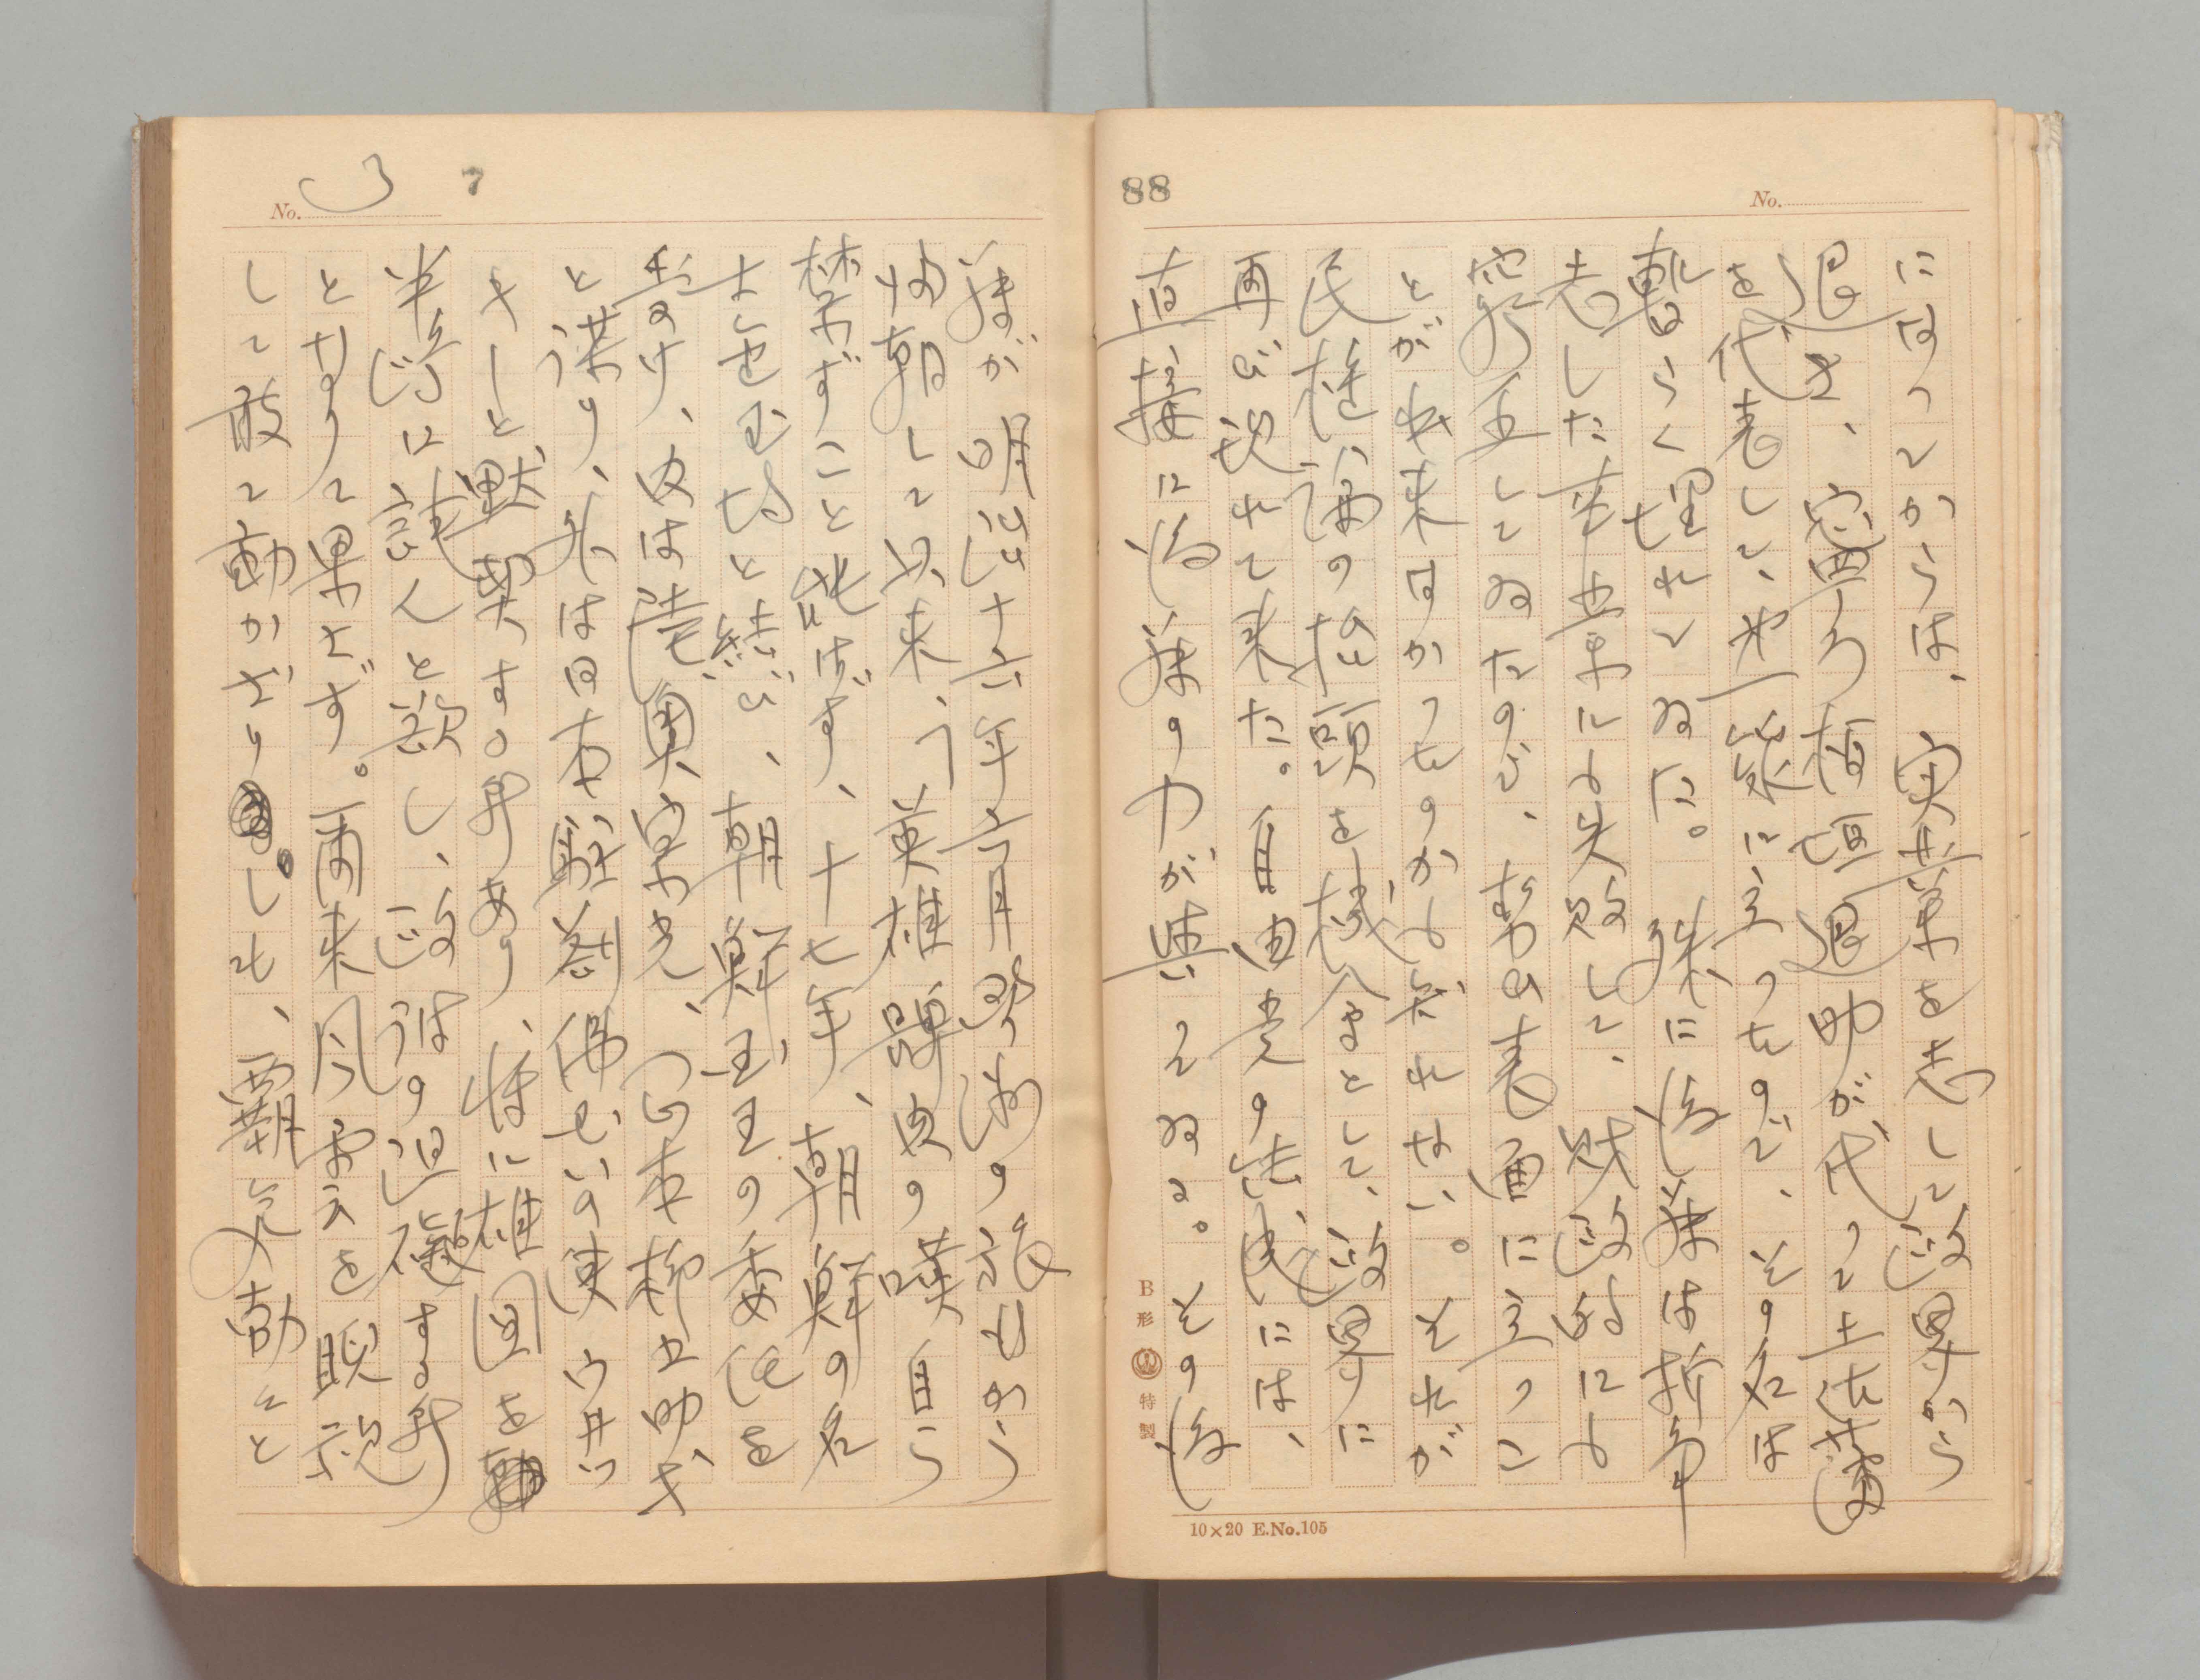 88
No.
になつてからは、実業を志して政界から
退き、寧ろ板垣退助が代つて土佐藩
を代表して、せ一線に立つたので、その名は
暫らく埋れてゐた。殊に後藤は折角
志した事業にも失敗して、財政的にも
窮乏してゐたので、勢ひ表面に立つこ
とが出来なかつたのかも知れない。それが
民権論の抬頭を機会として、政界に
再び現れて来た。自由党の結成には、
直接に後藤の力が與つてゐる。その後
B形 特製
10×20 E.No.105
No. 3 7
藤が明治十六年六月欧洲の旅から
帰朝して以来、「英雄髀肉の嘆自ら
禁ずること能はず、十七年、朝鮮の名
士金玉均と結び、朝鮮国王の委任を
享け、内は陸奥宗光、山本柳之助
と謀り、外は日本駐剳佛公使
と黙契する所あり、将に雄図を
半島に試んと欲し、政府の沮礙する所
となりて果さず。爾来風雲を睨視
して敢て動かざりしも、覇気勃々と